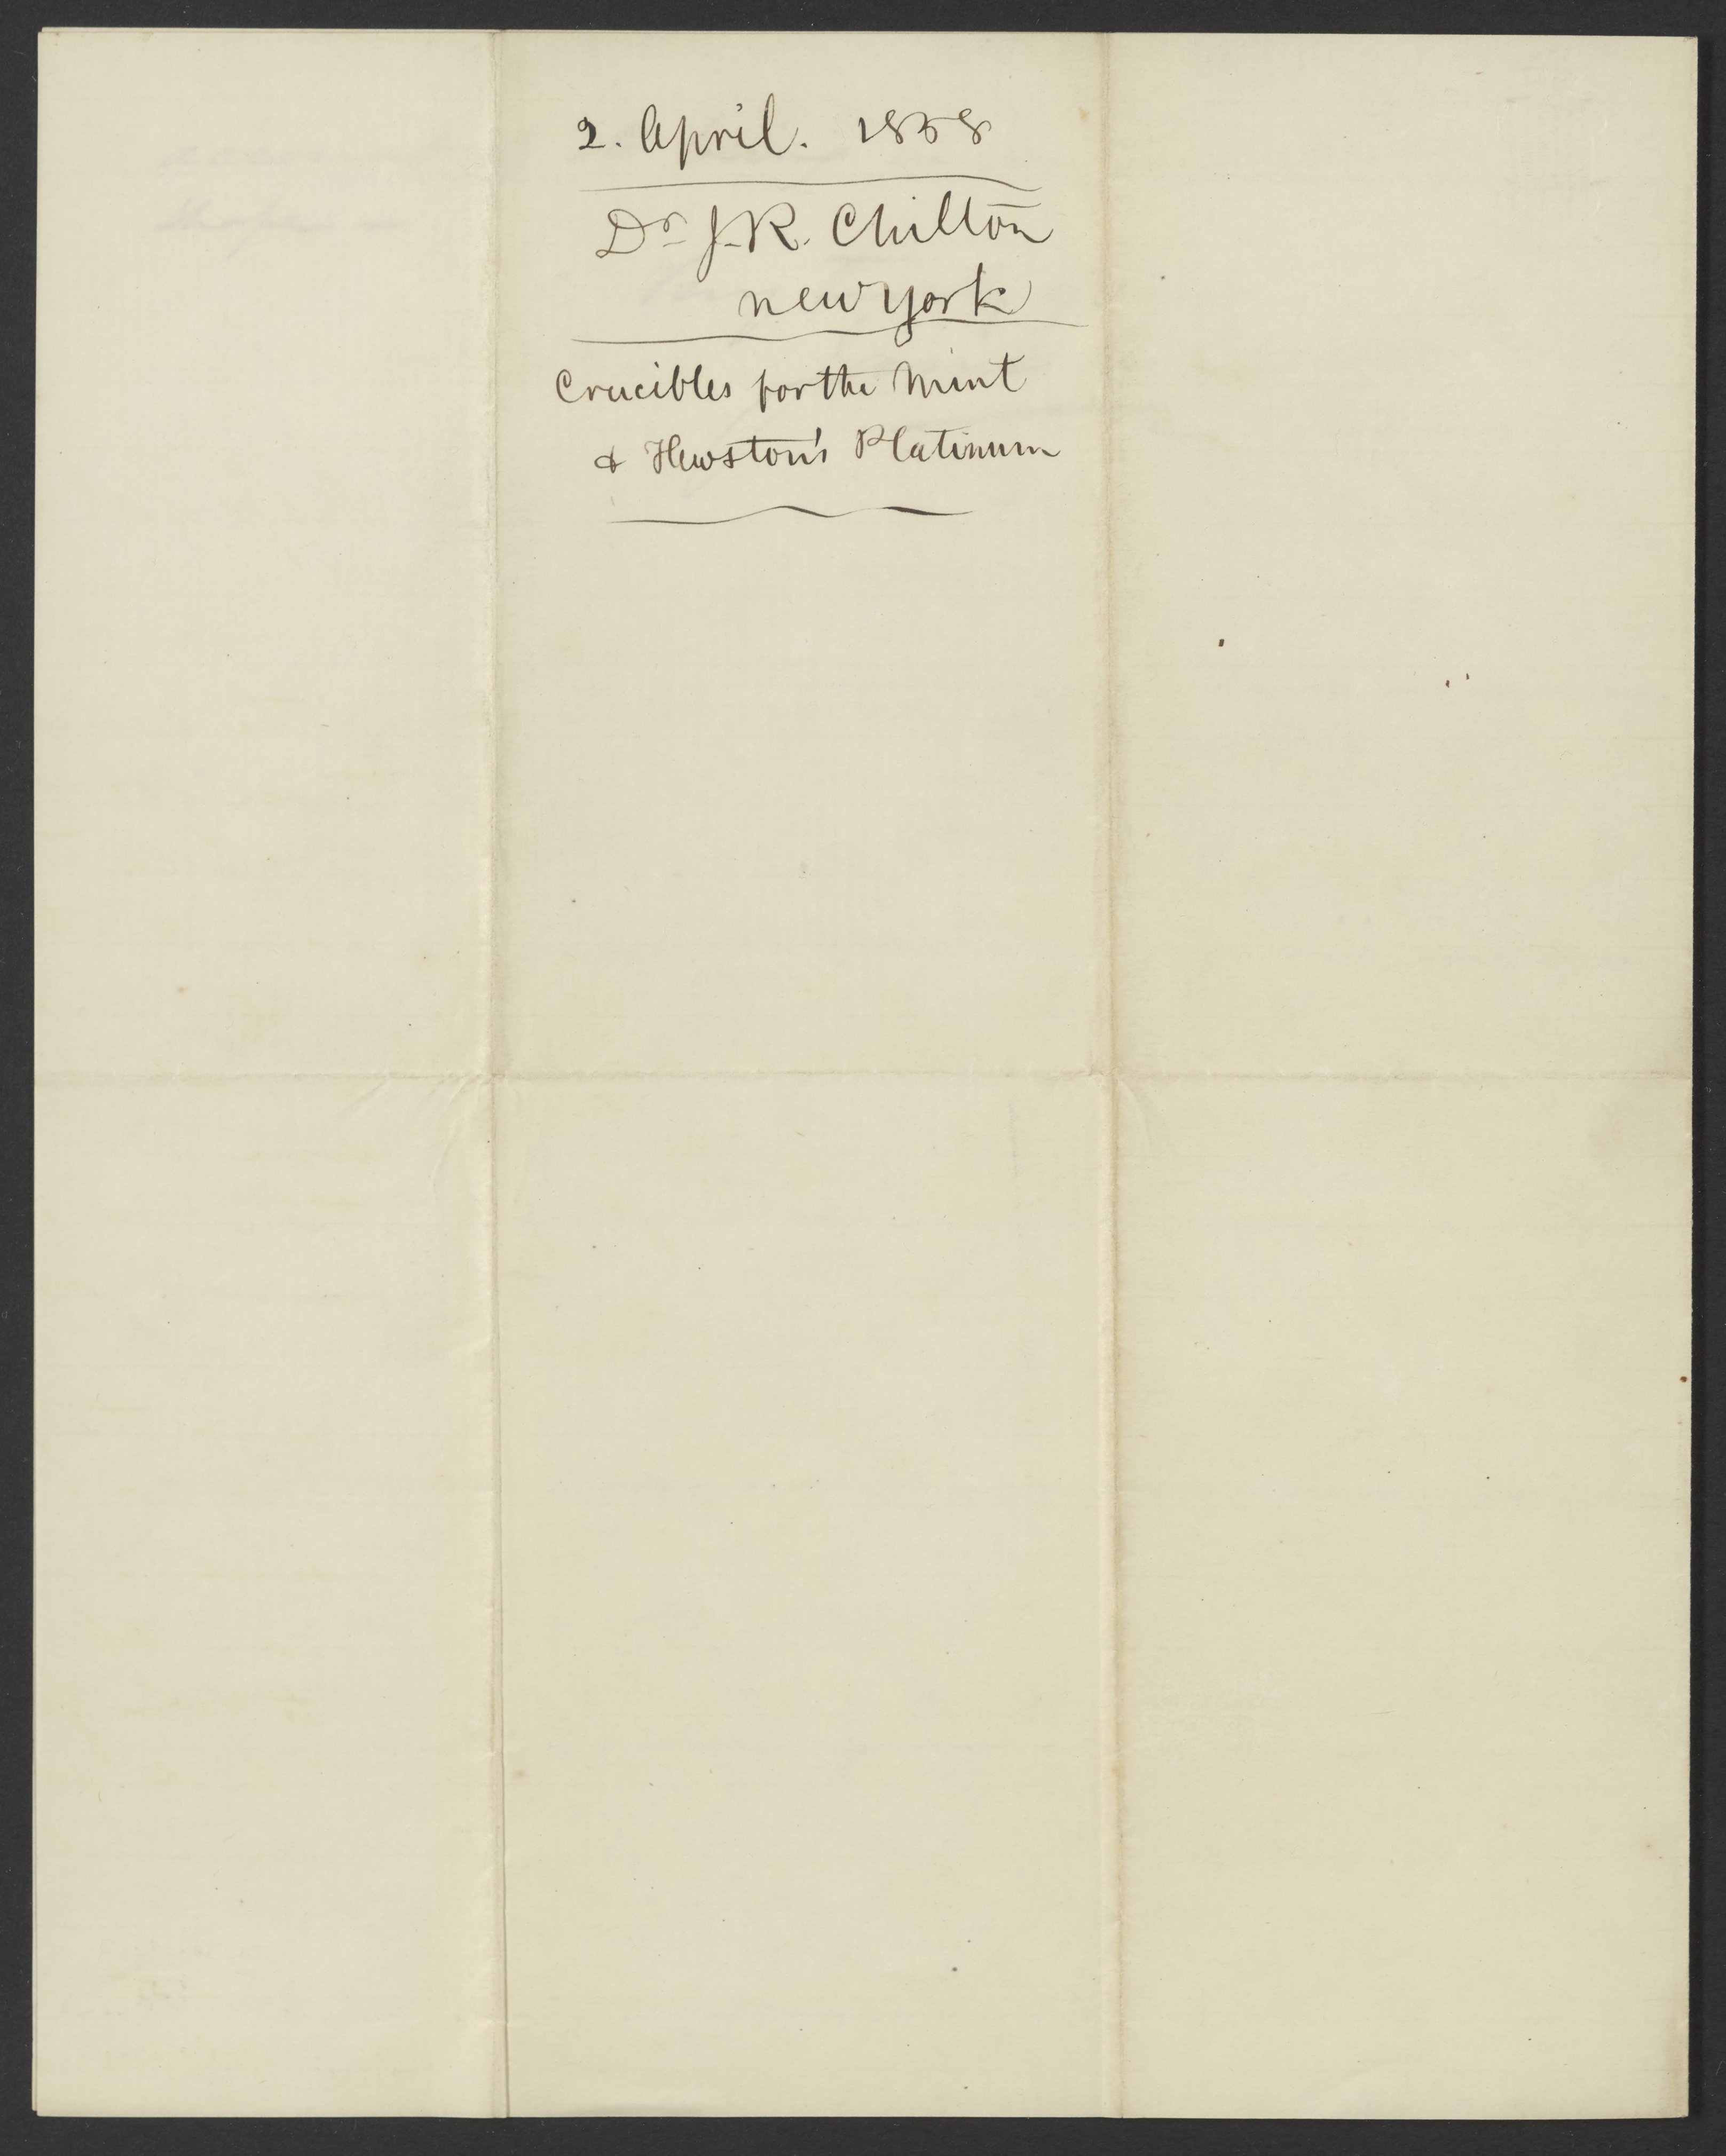 2. April. 1858
Dr J. R. Chilton
new york
Crucibles for the Mint
& Hewston's Platinum